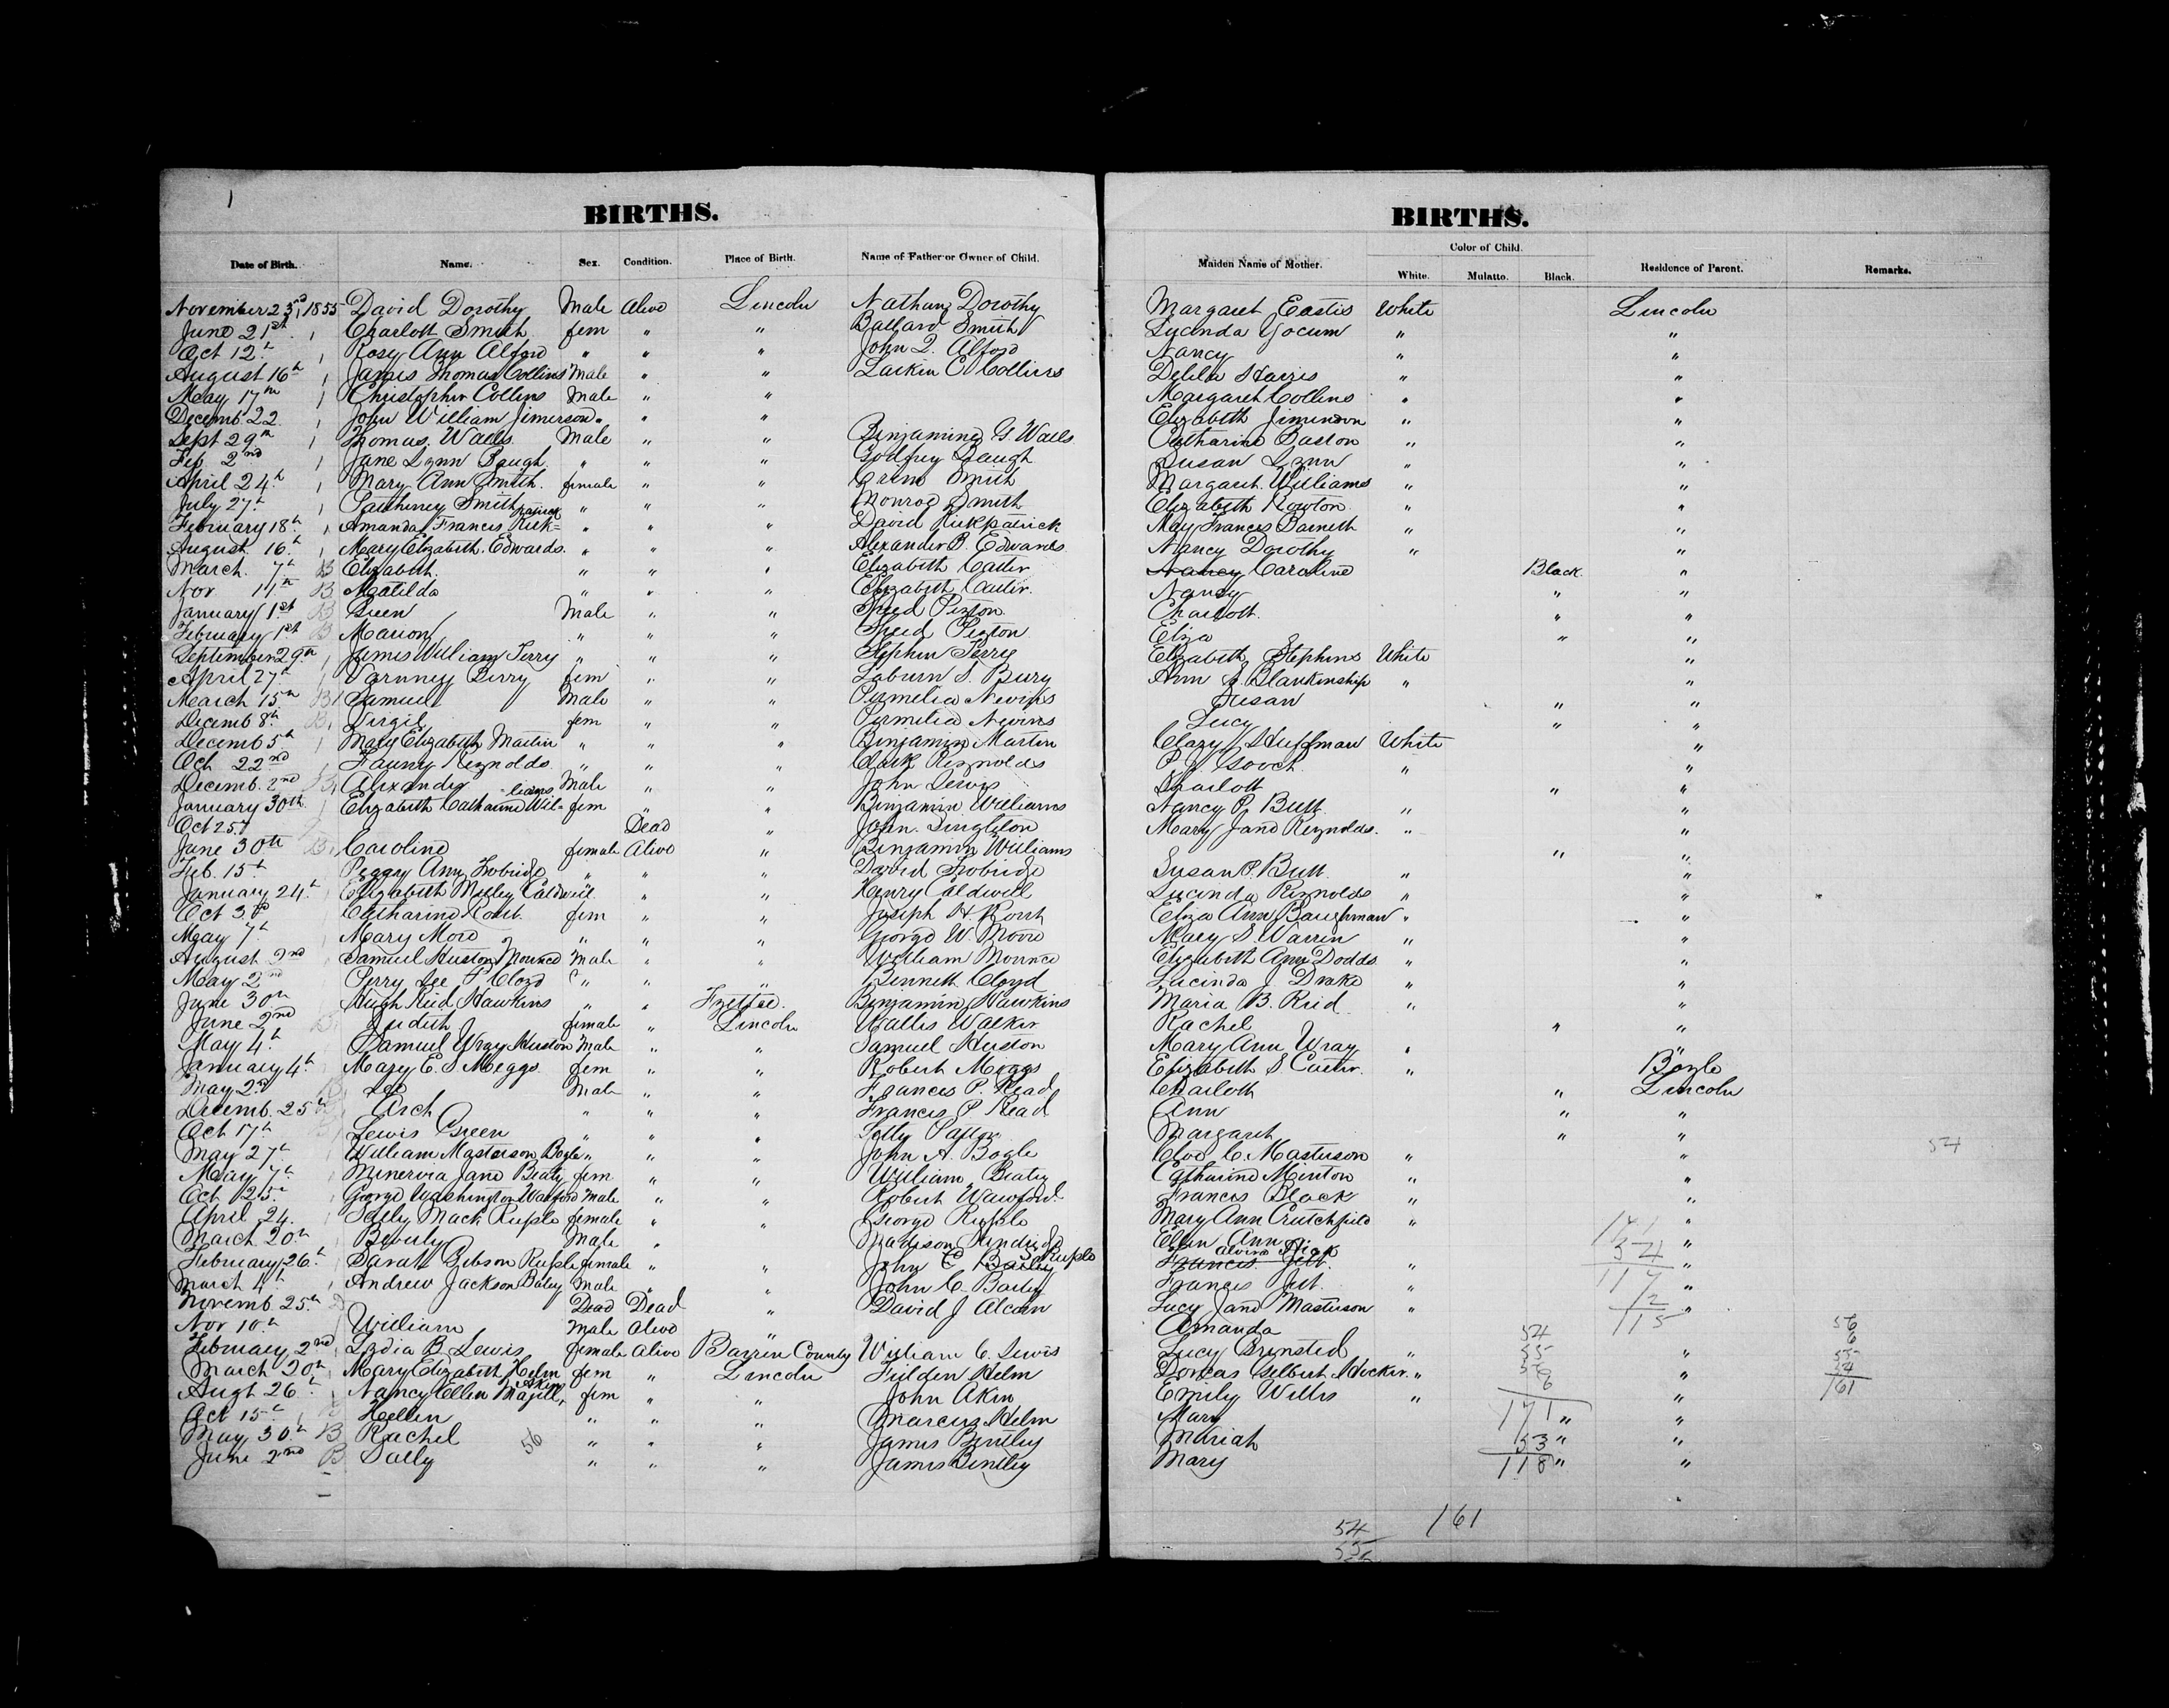 1
BIRTHS. BIRTHS.
Date of Birth. Name. Sex. Condition. Place of Birth. Name of Father or Owner of Child. Maiden Name of Mother. Color of Child. White. Mulatto. Black. Residence of Parent. Remarks.
November 23rd, 1855 David Dorothy Male Alive Lincoln Nathan Dorothy Margaret Eastis White Lincoln
June 21st Charlott Smith fem " " Ballard Smith Lucinda Yocum " "
Oct 12th Rosy Ann Alford " " " John Q. Alford Nancy " "
August 16th James Thomas Collins Male " " Larkin C Collins Delila Harris " "
May 17th Christopher Collins Male " " Margaret Collins " "
Decemb 22 John William Jimerson " " " Elizabeth Jimerson " "
Sept 29th Thomas Walls Male " " Benjamine G. Walls Catharine Baston " "
Feb 2nd Jane Lynn Baugh " " " Godfrey Baugh Susan Lynn " "
April 24th Mary Ann Smith. female " " Smith Margaret Williams " "
July 27th Smith " " " Monroe Smith Elizabeth Rowton " "
February 18th Amanda Francis Kirk=patrick " " " David Kirkpatrick May Francis Barnett " "
August 16th Mary Elizabeth Edwards. " " " Alexander B. Edwards Nancy Dorothy " "
March 7th B Elizabeth. " " " Elizabeth Carter Nancy Caroline Black "
Nov 11th B Matilda " " " Elizabeth Carter. Nancy " "
January 1st B Green Male " " Speed Pexton Charlott. " "
February 1st B Marion " " " Speed Pexton Eliza " "
September 29th James William Perry " " " Stephen Perry Elizabeth Stephens White "
April 27th Berry fem " " Laburn S. Berry Ann S. Blankinship " "
March 15th B Samuel Male " " Permelia Nevins Susan " "
Decemb 8th B Virgil fem " " Permelia Nevins Lucy " "
Decemb 5th Mary Elizabeth Martin " " " Benjamin Martin Clary Huffman White "
Oct 22nd Fanny Reynolds " " " Clark Reynolds P. J. Gooch " "
Decemb. 2nd B Alexander Male " " John Lewis Charlott " "
January 30th Elizabeth Catharine Wil=liams fem " " Benjamin Williams Nancy P. Butt " "
Oct 25th Dead " John Singleton Mary Jane Reynolds. " "
June 30th B Caroline female Alive " Benjamin Williams " "
Feb. 15th Peggy Ann Lobride " " " David Lobride Susan P. Butt " "
January 24th Elizabeth Caldwell " " " Henry Caldwell Lucinda Reynolds " "
Oct 3rd Catharine Rout. fem " " Joseph H. Rout Eliza Ann Baughman " "
May 7th Mary More " " " George W. Moore Mary S Warren " "
August 2nd Samuel Huston Mounce Male " " William Mounce Elizabeth Ann Dodds " "
May 2nd Perry Lee P Cloyd " " " Bennett Cloyd Lucinda J. Drake " "
June 30th Hugh Reid Hawkins " " Fzette. Benjamin Hawkins Maria B. Reid " "
June 2nd B Judith female " Lincoln Wallis Walker Rachel " "
May 4th Samuel Wray Huston Male " " Samuel Huston Mary Ann Wray " "
January 4th Mary E. S Meggs fem " " Robert Meggs Elizabeth S Carter " Boyle
May 2nd B Lee Male " " Frances P. Read Charlott " Lincoln
Decemb. 25th B Arch " " " Francis P. Read Ann " "
Oct 17th B Lewis Green " " " Margaret " "
May 27th William Masterson Bogle " " " John A. Bogle C. Masterson " "
May 7th Minervia Jane Beaty fem " " William Beaty Catharine Minton " "
Oct 25th George Washington Warford Male " " Robert Warford. Francis Black " "
April 24. Sally Mack Rufsle female " " George Rufsle Mary Ann Crutchfield " "
March 20th Beverly Male " Madison Ellen Ann "
February 26th Sarah Gibson Rufsle female " " John C Bailey Rufsle Francis Jett. alvira High " "
March 4th Andrew Jackson Baley Male " " John C. Bailey Francis Jett. " "
Novemb. 25th Dead Dead " David J. Alcorn Lucy Jane Masterson " "
Nov 10th William Male Alive " Amanda
February 2nd Lydia B Lewis female Alive Barren County William C. Lewis Lucy Brinsted "
March 20th Mary Elizabeth Helm fem " Lincoln Fielden Helm Dorcas Gilbert Hocker " "
Augt 26th Nancy Ellen Magill, Akin fem " " John Akin Emily Willis " "
Oct 15th B Hellen " " " Marcus Helm Mary " "
May 30th B Rachel " " " James Bentley Mariah " "
June 2nd B Sally " " " James Bentley Mary " "
56
54
171
54
117
2
115
54
55
56
6
171
53
118
56
6
55
54
161
161
54
55
56